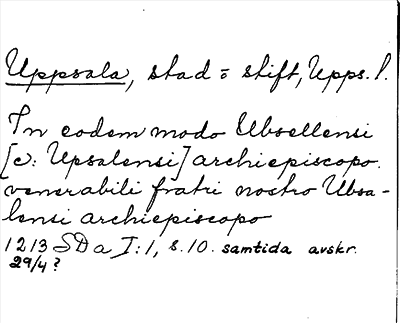 Uppsala, stad ō stift, Upps. l.
In eodem modo Ubsellensi
[c: Upsalensi] archiepiscopo.
venerabili fratri nostro Ubsa-
lensi archiepiscopo
1213 SD a I:1, s. 10. samtida avskr.
29/4?